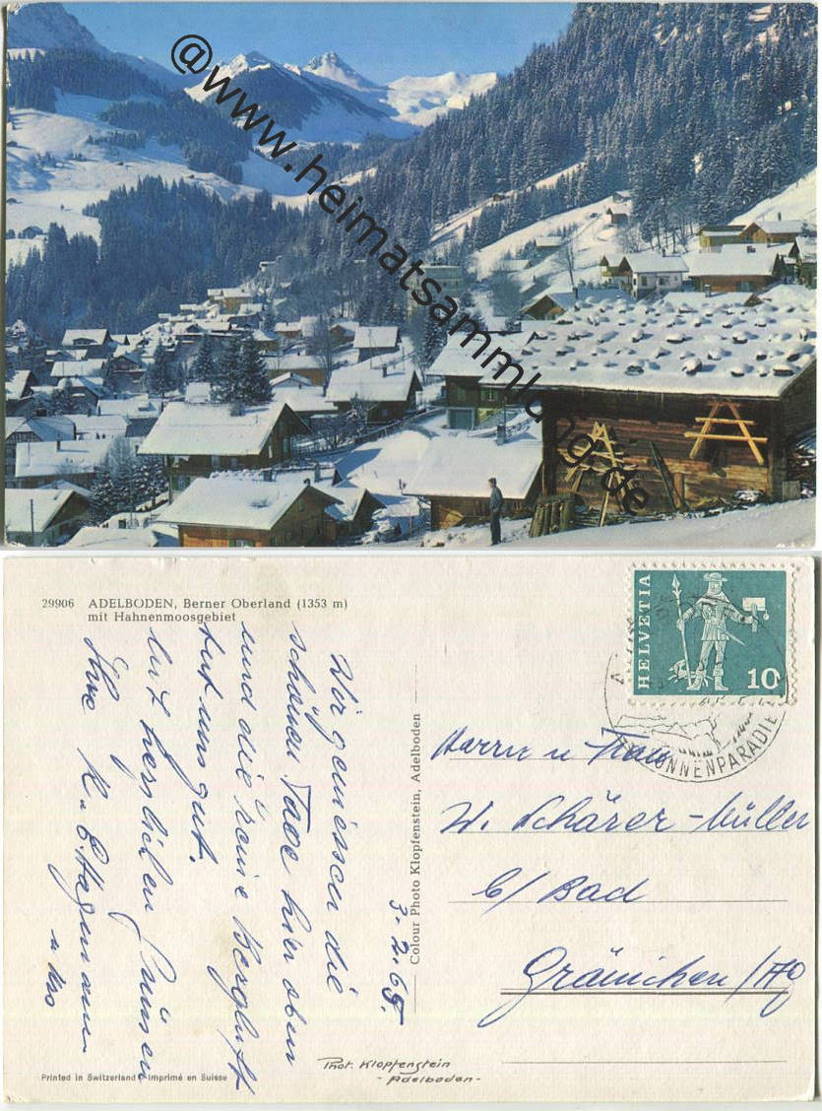 @www.heimatsammlung.de
29906 ADELBODEN, Berner Oberland (1353 m)
mit Hahnenmoosgebiet
HELVETIA
10
SONNENPARADIE
Wir geniessen die
schönen Tage hier oben
und die reine Bergluft
tut uns gut.
Mit herzlichen Grüssen
Ihre K. E. Hagemann
3.2.65.
Colour Photo Klopfenstein, Adelboden
Herrn u Frau
W. Schärer-Müller
b/ Bad
Gränichen/Ag
Phot. Klopfenstein
- Adelboden -
Printed in Switzerland - Imprimé en Suisse